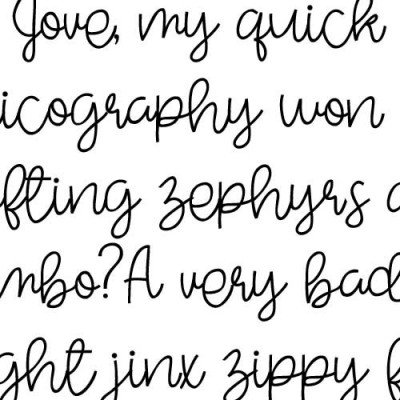 Jove, my quick
icography won
fting zephyrs
mbo? A very bad
ght jinx zippy f